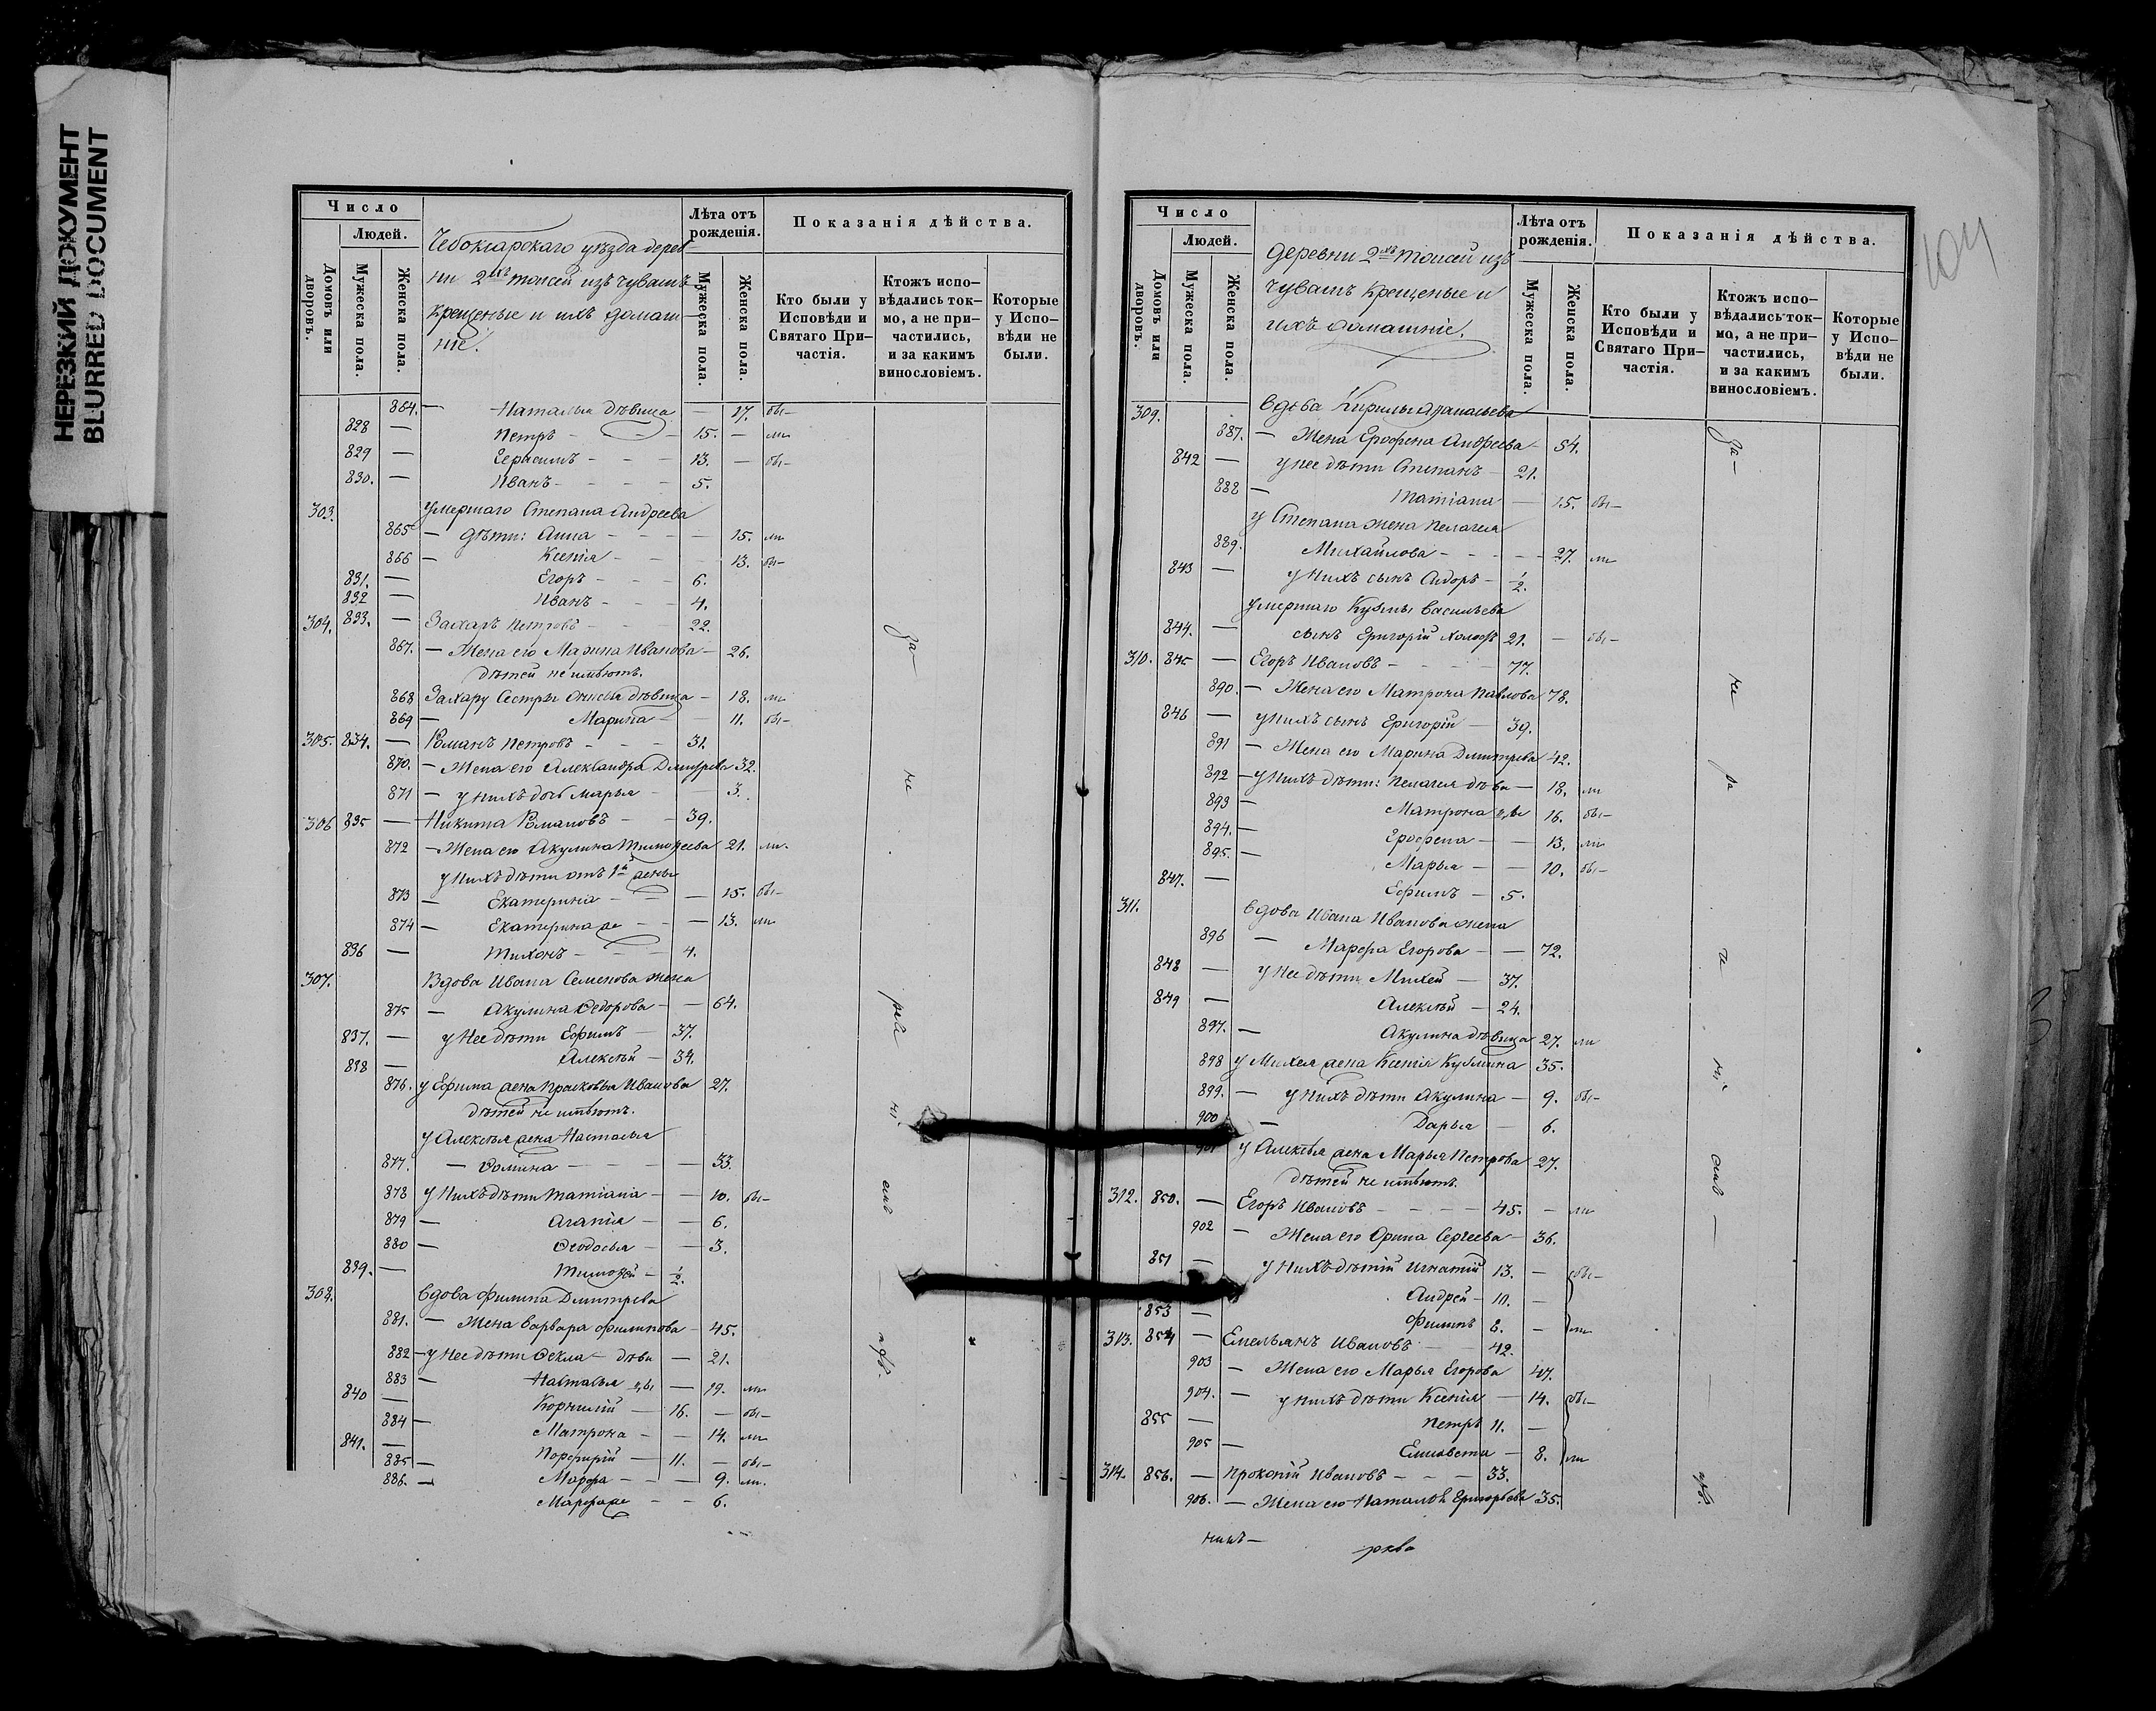 НЕРЕЗКИЙ ДОКУМЕНТ
BLURRED DOCUMENT
Число
Людей.
Домовъ или дворовъ.
Мужеска пола.
Женска пола.
Чебоксарскаго уѣзда дерев
ни 2хъ Томсей изъ чувашъ
крещеные и ихъ домаш
ніе.
Лѣта отъ рожденія.
Мужеска пола.
Женска пола.
Показанія дѣйства.
Кто были у Исповѣди и Святаго При-частія.
Ктожъ испо-вѣдались ток-мо, а не при-частились, и за какимъ винословіемъ.
Которые у Испо-вѣди не были.
864. — Наталья дѣвица — 17. бы—
828 — Петръ — 15. — ли
829 — Герасимъ — 13. — бы—
830. — Иванъ — 5.
303. умершаго Степана Андреева
865 — дѣти: Анна — 15. ли
866 — Ксенія — 13. бы—
831. — Егоръ — 6.
832 — Иванъ — 4.
304. 833. — Захаръ Петровъ — 22.
867. — Жена его Марина Иванова — 26.
дѣтей не имѣютъ.
868 Захару Сестры дѣвица — 18. ли
869 — Марина — 11. бы—
305. 834. — Романъ Петровъ — 31.
870. — Жена его Александра Дмитрева 32.
871 — у нихъ дочь Марья — 3.
306 835 — Никита Романовъ — 39.
872 — Жена его Акулина Тимофеева 21. ли
у нихъ дѣти отъ 1й жены
873 — Екатерина — 15. бы—
874 — Екатерина же — 13. ли
836 — Тихонъ — 4.
307. Вдова Ивана Семенова жена
875 — Акулина Ѳедорова — 64.
837. — у нее дѣти Ефимъ — 37.
838 — Алексѣй — 34.
876. у Ефима жена Прасковья Иванова 27.
дѣтей не имѣютъ.
у Алексѣя жена Настасья
877. — Ѳомина — 33.
878 у нихъ дѣти Татіана — 10. бы—
879 — Агапія — 6.
880 — Ѳеодосья — 3.
839. — Тимофей — 1/2.
308. вдова Филипа Дмитрева
881. — Жена Варвара Филипова — 45.
882 — у нее дѣти Ѳекла — дѣви — 21.
883 — Настасья дѣв — 19. ли
840 — Корнилій — 16. — бы—
884 — Матрона — 14. ли
841. — Порфирій — 11. — бы—
885 — Марфа — 9. ли.
886. — Марфа же — 6.
За—
не
ра
ні
емъ
Число
Людей.
Домовъ или дворовъ.
Мужеска пола.
Женска пола.
деревни 2хъ Томсей изъ
чувашъ крещеные и
ихъ домашніе.
Лѣта отъ рожденія.
Мужеска пола
Женска пола.
Показанія дѣйства.
Кто были у Исповѣди и Святаго При-частія.
Ктожъ испо-вѣдались ток-мо, а не при-частились, и за какимъ винословіемъ.
Которые у Испо-вѣди не были.
104
309. вдова Кирилы Афанасьева
887. — Жена Ерофена Андреева — 54.
842 — у нее дѣти Степанъ — 21.
888 — Татіана — 15. бы—
у Степана жена Пелагея
889. Михайлова — 27. ли
843 — у нихъ сынъ Сидоръ — 1/2.
умершаго Кузмы Васильева
844. — сынъ Григорій холост 21. — бы—
310. 845 — Егоръ Ивановъ — 77.
890. — Жена его Матрона Павлова 78.
846 — у нихъ сынъ Григорій — 39.
891 — Жена его Марина Дмитрева 42.
892 — у нихъ дѣти: Пелагея дѣви — 18. ли
893 — Матрона дѣв 16. бы—
894. — Ерофена — 13. ли
895. — Марья — 10. бы—
847. — Ефимъ — 5.
311. вдова Ивана Иванова жена
896 — Марфа Егорова — 72.
848 — у нее дѣти Михей — 37.
849 — Алексѣй — 24.
897. — Акулина дѣвица 27. ли
898 у Михея жена Ксенія Кузмина 35.
899. — у нихъ дѣти Акулина — 9. бы—
900 — Дарья — 6.
901 у Алексѣя жена Марья Петрова 27.
дѣтей не имѣютъ.
312. 850. — Егоръ Ивановъ — 45. — ли
902 — Жена его Орина Сергеева — 36.
851 — у нихъ дѣтій Игнатій 13. — бы—
Андрей — 10. —
853 — Филипъ 8. — ли
313. 854 — Емельянъ Ивановъ — 42.
903 — Жена его Марья Егорова 47.
904. — у нихъ дѣти Ксенія — 14. бы—
855 — Петръ 11. —
905 — Елисавета — 8. ли
314. 856. — Прокопій Ивановъ — 33.
906. — Жена его Наталья Григорьева 35.
За—
не
ра
ні
емъ —